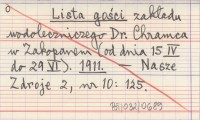 Lista gości zakładu
wodoleczniczego Dr. Chramca
w Zakopanem (od dnia 15 IV
do 29 VI). 1911. — Nasze
Zdroje 2, nr 10: 125.